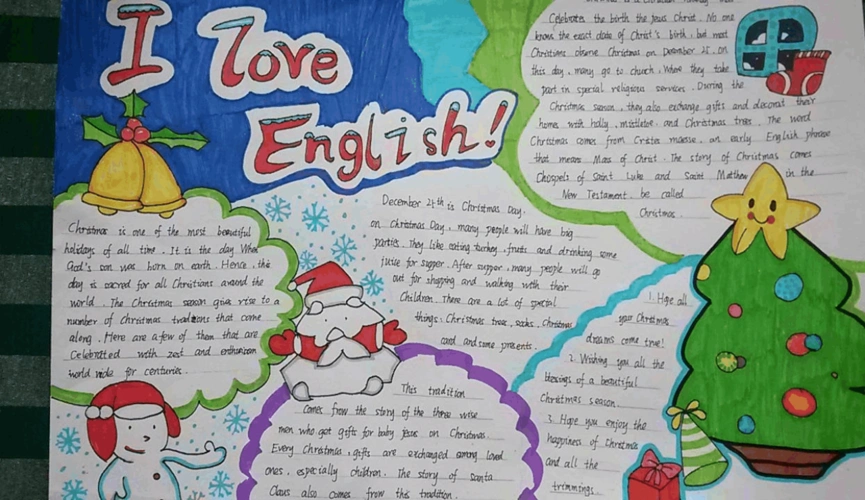 I love
English!
Celebrates the birth the Jesus Christ. No one
knows the exact date of Christ's birth, but most
Christians observe Christmas on December 25, on
this day, many go to church, Where they take
part in special religious services. During the
Christmas season, they also exchange gifts and decorat their
homes with holly, mistletoe, and Christmas trees. The word
Christmas comes from Cristes maesse, an early English phrase
that means Mass of Christ. The story of Christmas comes
Chospels of Saint Luke and Saint Matthew in the
New Testament. be called
Christmas
Christmas is one of the most beautiful
holidays of all time. It is the day When
God's son was born on earth. Hence, this
day is sacred for all Christians around the
world. The Christmas season give rise to a
number of Christmas traditions that come
along. Here are a few of them that are
Celebrated with zest and
world wide for centuries.
December 25th is Christmas Day.
on Christmas Day, many people will have big
parties. They like eating turkey, fruits and drinking some
juice for supper. After supper, many people will go
out for shopping and walking with their
Children. There are a lot of special
things: Christmas tree, socks, Christmas
card and some presents.
This tradition
comes from the story of the three wise
men who got gifts for baby Jesus on Christmas.
Every Christmas, gifts are exchanged among loved
ones, especially children. The story of santa
Claus also comes from this tradition.
1. Hope all
your Christmas
dreams come true!
2. Wishing you all the
blessings of a beautiful
Christmas season
3. Hope you enjoy the
happiness of Christmas
and all the
trimmings